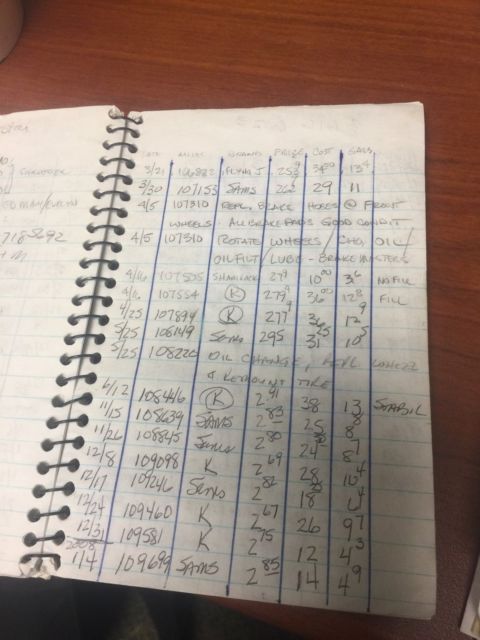 DATE MILES BRAND PRICE COST GALS
3/21 106882 FLYING J 253⁹ 34⁰⁰ 13⁴
3/30 107153 SAMS 262 29 11
4/5 107310 REPL. BRAKE HOSES @ FRONT
WHEELS - ALL BRAKE PADS GOOD CONDIT
4/5 107310 ROTATE WHEELS / CHG. OIL/
OIL FILT/ LUBE -
4/16 107505 SHAMROCK 279 10⁰⁰ 3⁶ NO FILL
4/16 107554 K 279⁹ 36⁰⁰ 12⁸ FILL
4/25 107894 K 277⁹ 36 12⁹
5/25 108149 Sams 295 31²⁵ 10⁵
5/25 108220 OIL CHANGE, REPL WHEEL
& REMOUNT TIRE
6/12 108416 K 2⁹¹ 38 13 STABIL
11/15 108639 SAMS 2⁸³ 25 8⁸
11/26 108845 Sams 2⁸⁰ 24 8⁷
12/8 109098 K 2⁶⁹ 28 10⁴
12/17 109246 Sams 2⁸² 18 6⁴
12/24 109460 K 2⁶⁷ 26 9⁷
12/31 109581 K 2⁷⁵ 12 4³
2008
1/4 109699 SAMS 2⁸⁵ 14 4⁹